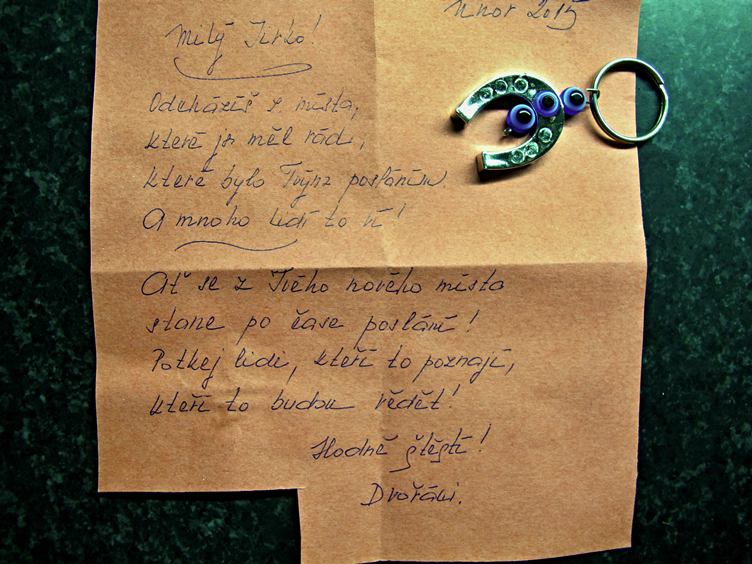 Únor 2015
Milý Jirko!
Odcházíš z místa,
které jsi měl rád,
které bylo Tvým posláním.
A mnoho lidí to ví!
Ať se z Tvého nového místa
stane po čase poslání!
Potkej lidi, kteří to poznají,
kteří to budou vědět!
Hodně štěstí!
Dvořáci.